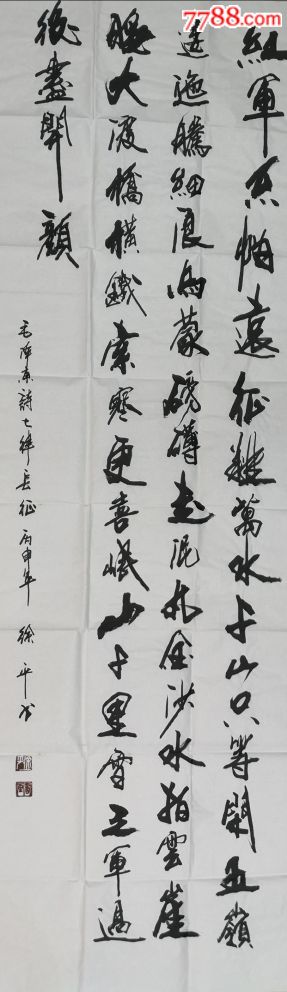 7788.com
中国收藏热线
紅軍不怕遠征難萬水千山只等閑五嶺
逶迤騰細浪烏蒙磅礴走泥丸金沙水拍雲崖
暖大渡橋橫鐵索寒更喜岷山千里雪三軍過
後盡開顏
毛澤東詩七律長征 丙申年 徐平书